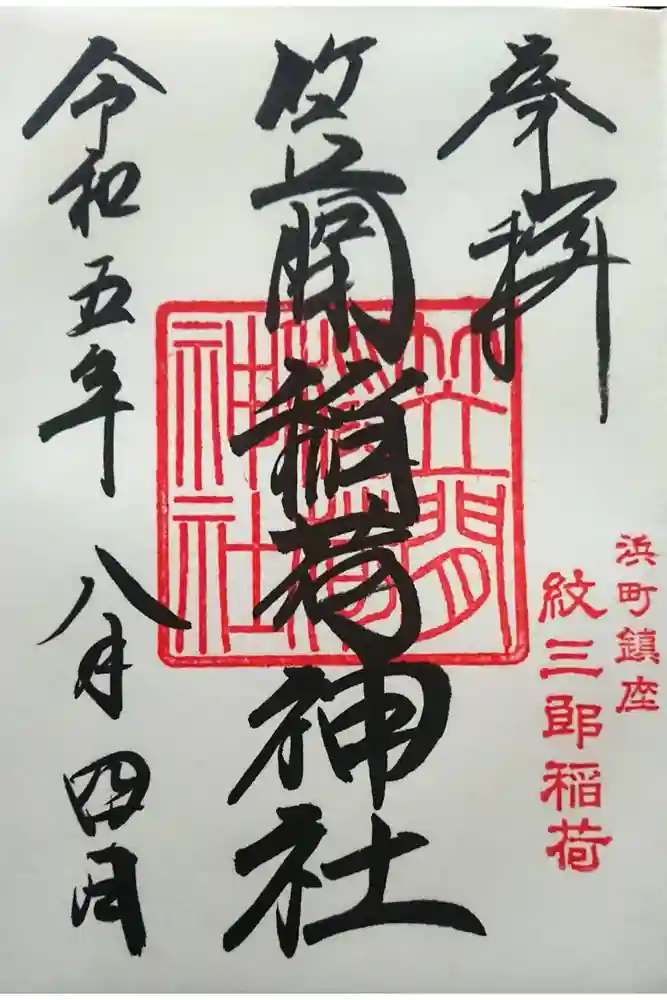 奉拝
浜町鎮座
紋三郎稲荷
笠間稲荷神社
笠間
稲荷
神社
令和五年八月四日